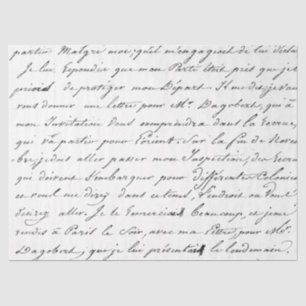 partir Malgré moi, qu'il m'engageoit de lui
Je lui Repondis que mon Parti étoit pris que je
de proteger mon Départ. Il me dit, je vai
vous donner une lettre, pour Mr. Dagobert, qui à
mon Invitation Vous comprendra dans la
qui va partir pour l'orient. Sur la fin de Novem
bre, je dois aller passer mon Inspection, des
qui doivent S'embarquer pour differentes Colonies
ce vous me direz dans ce tems, Vendroit ou Vous
aller. Je le Remerciai Beaucoup, et je me
rendis à Paris le Soir, avec ma Lettre, pour Mr.
Dagobert; que je lui présentai le lendemain.